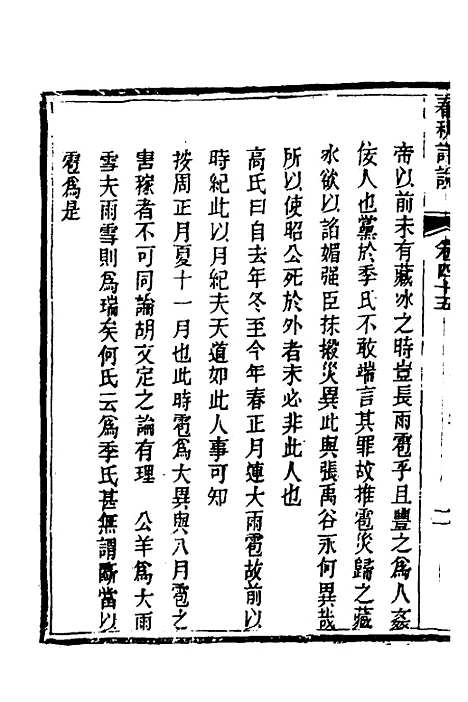 春秋詳說
卷四十五
二
帝以前未有藏冰之時豈長雨雹乎且豐之為人姦
佞人也黨於季氏不敢端言其罪故推雹災歸之藏
氷欲以諂媚强臣抹摋災異此與張禹谷永何異哉
所以使昭公死於外者未必非此人也
高氏曰自去年冬至今年春正月連大雨雹故前以
時紀此以月紀夫天道如此人事可知
按周正月夏十一月也此時雹為大異與八月雹之
害稼者不可同論胡文定之論有理　公羊為大雨
雪夫雨雪則為瑞矣何氏云為季氏甚無謂斷當以
雹為是